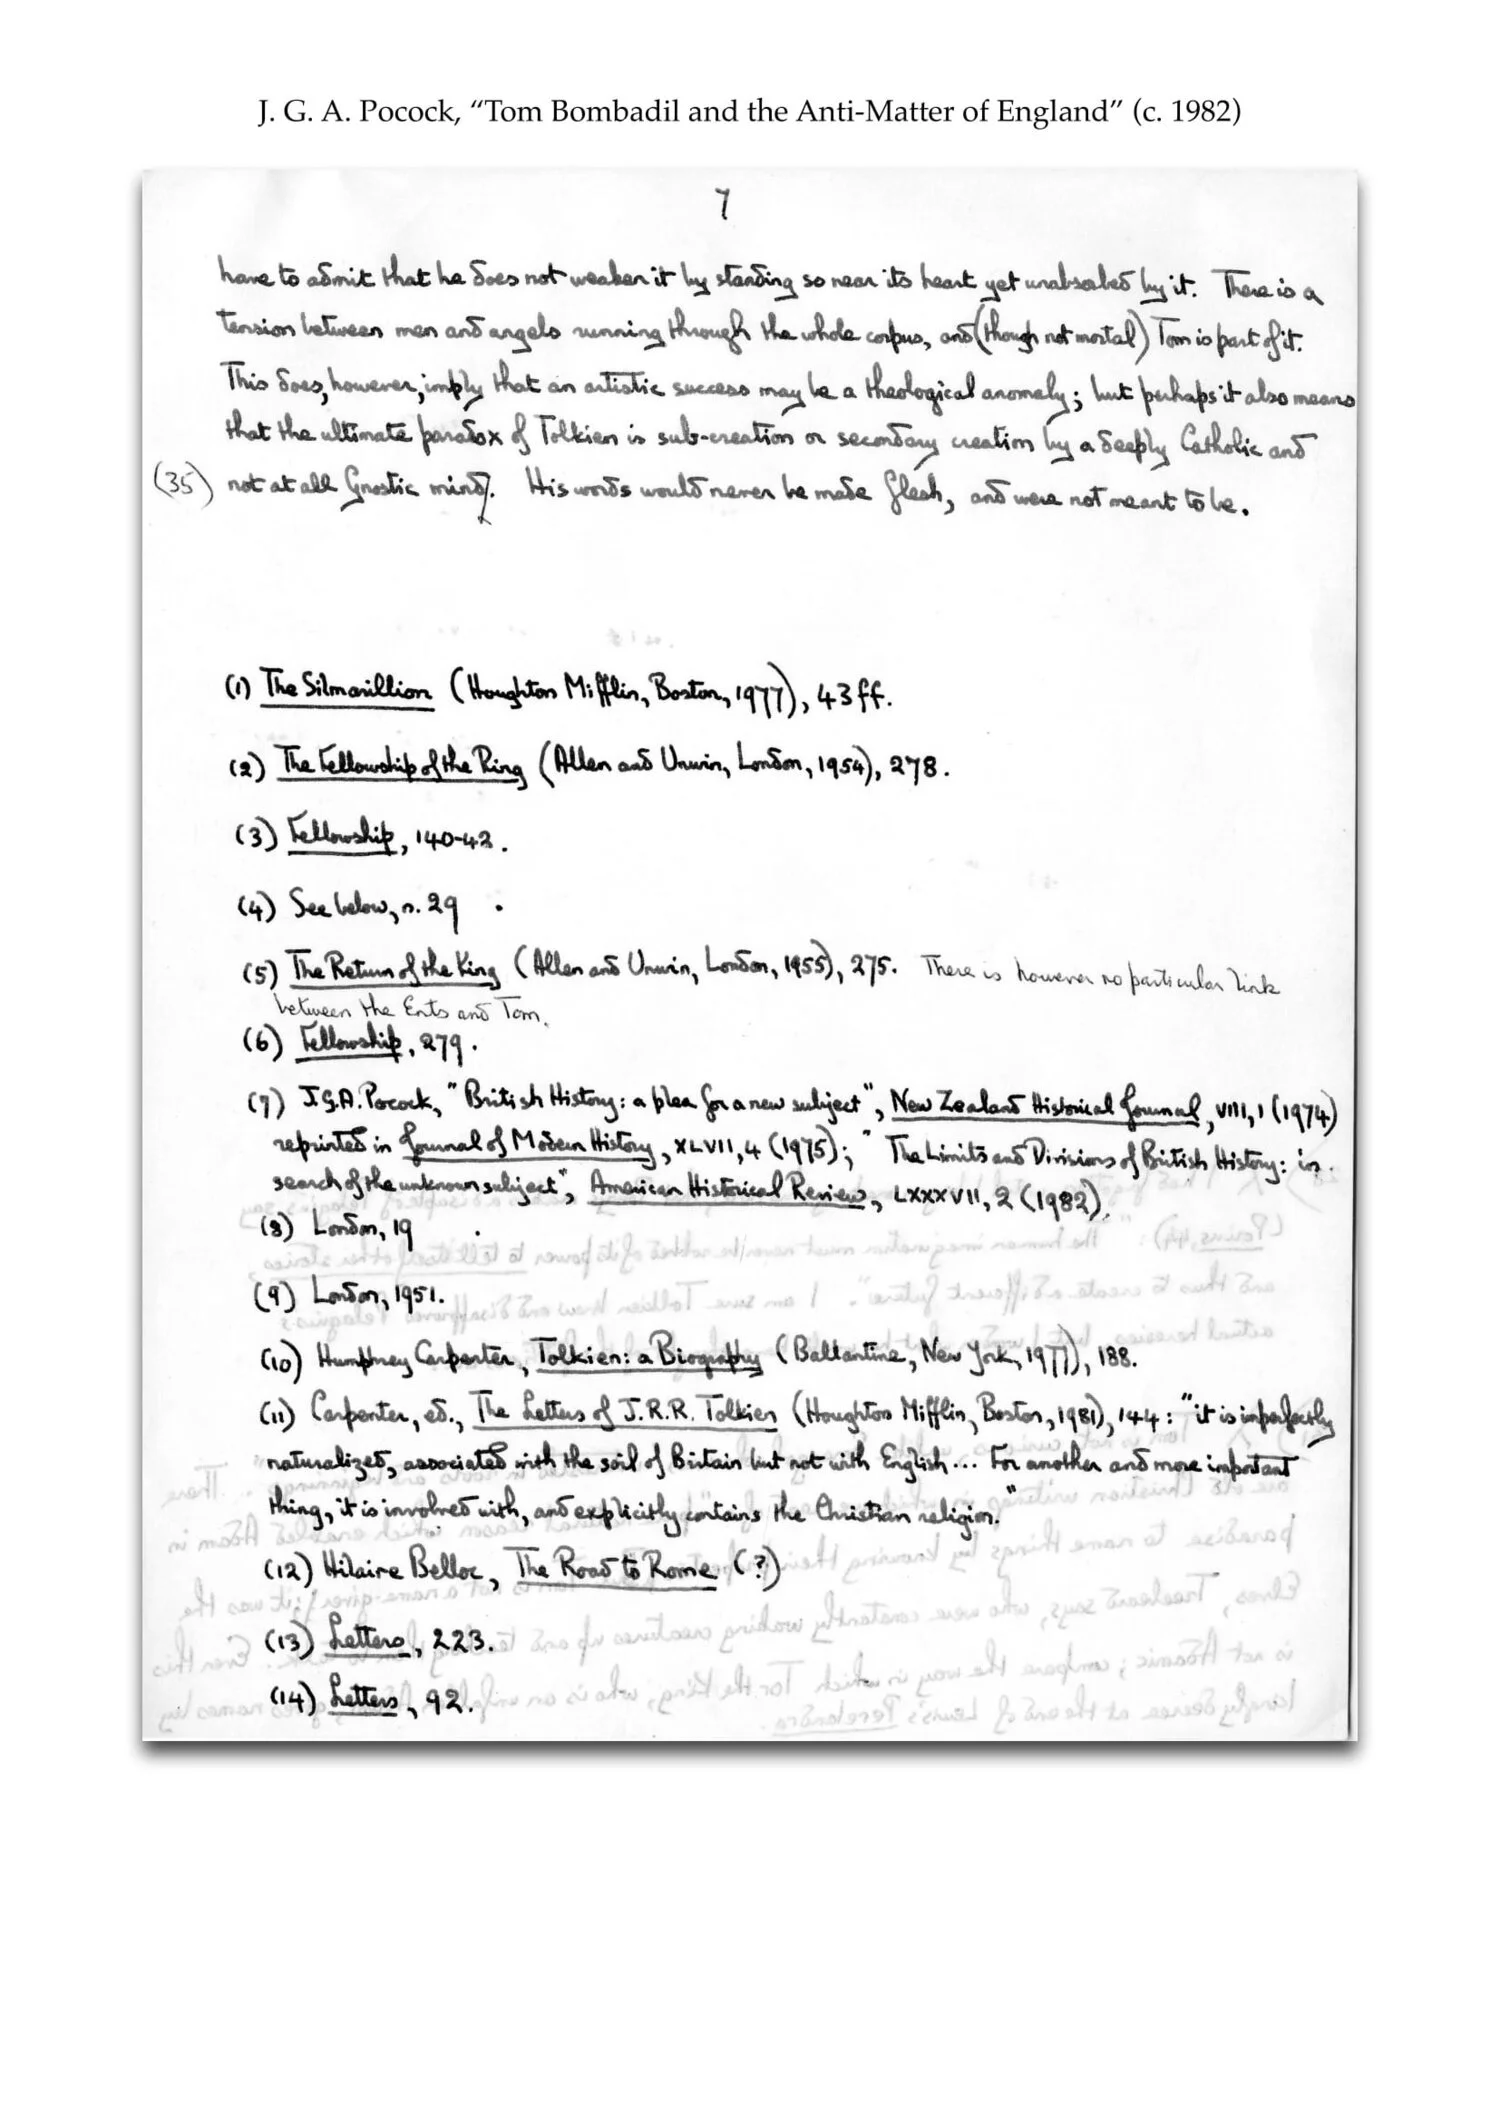 J. G. A. Pocock, “Tom Bombadil and the Anti-Matter of England” (c. 1982)
7
have to admit that he does not weaken it by standing so near its heart yet unabsorbed by it. There is a
tension between men and angels running through the whole corpus, and (though not mortal) Tom is part of it.
This does, however, imply that an artistic success may be a theological anomaly; but perhaps it also means
that the ultimate paradox of Tolkien is sub-creation or secondary creation by a deeply Catholic and
(35) not at all Gnostic mind. His words would never be made flesh, and were not meant to be.
(1) The Silmarillion (Houghton Mifflin, Boston, 1977), 43ff.
(2) The Fellowship of the Ring (Allen and Unwin, London, 1954), 278.
(3) Fellowship, 140-43.
(4) See below, n. 29 .
(5) The Return of the King (Allen and Unwin, London, 1955), 275. There is however no particular link
between the Ents and Tom.
(6) Fellowship, 279.
(7) J.G.A. Pocock, "British History: a plea for a new subject", New Zealand Historical Journal, VIII, 1 (1974)
reprinted in Journal of Modern History, XLVII, 4 (1975); "The Limits and Divisions of British History: in
search of the unknown subject", American Historical Review, LXXXVII, 2 (1982).
(8) London, 19 .
(9) London, 1951.
(10) Humphrey Carpenter, Tolkien: a Biography (Ballantine, New York, 1977), 188.
(11) Carpenter, ed., The Letters of J.R.R. Tolkien (Houghton Mifflin, Boston, 1981), 144: "it is imperfectly
naturalized, associated with the soil of Britain but not with English... For another and more important
thing, it is involved with, and explicitly contains the Christian religion."
(12) Hilaire Belloc, The Road to Rome (?)
(13) Letters, 223.
(14) Letters, 92.